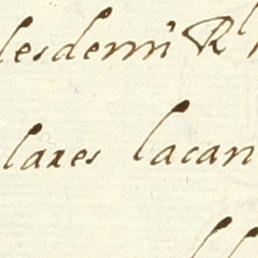 lesdemi R
laxes lacan